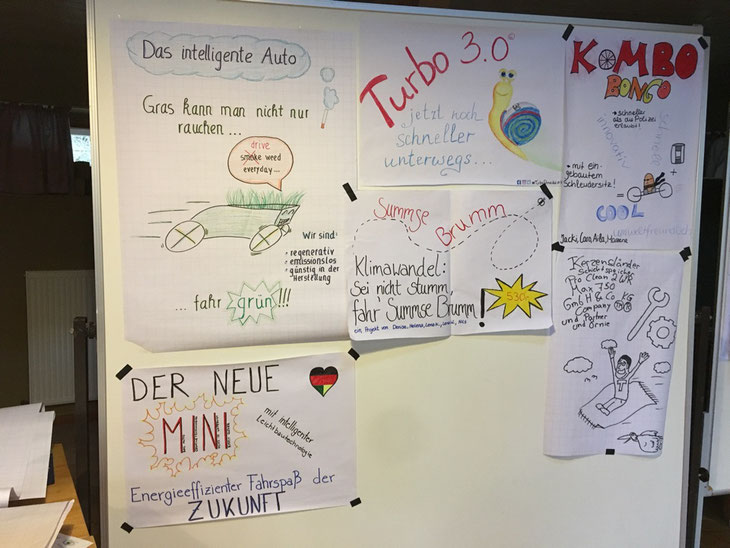 Das intelligente Auto
Gras kann man nicht nur
rauchen...
drive
smoke weed
everyday...
Wir sind:
• regenerativ
• emissionslos
• günstig in der
Herstellung
... fahr grün!!!
Turbo 3.0©
jetzt noch
schneller
unterwegs...
KOMBO
BONGO
• schneller
als die Polizei
erlaubt!
• mit ein-
gebautem
Schleudersitz!
= COOL
umweltfreundlich
Summse
Brumm
Klimawandel:
Sei nicht stumm,
fahr' Summse Brumm!
530,-
Kerzenständer
Pro Clean 2 WR
Max 750
GmbH & Co KG
Company
und Partner
und Ornie
DER NEUE
MINI
mit intelligenter
Leichtbautechnologie
Energieeffizienter Fahrspaß der
ZUKUNFT